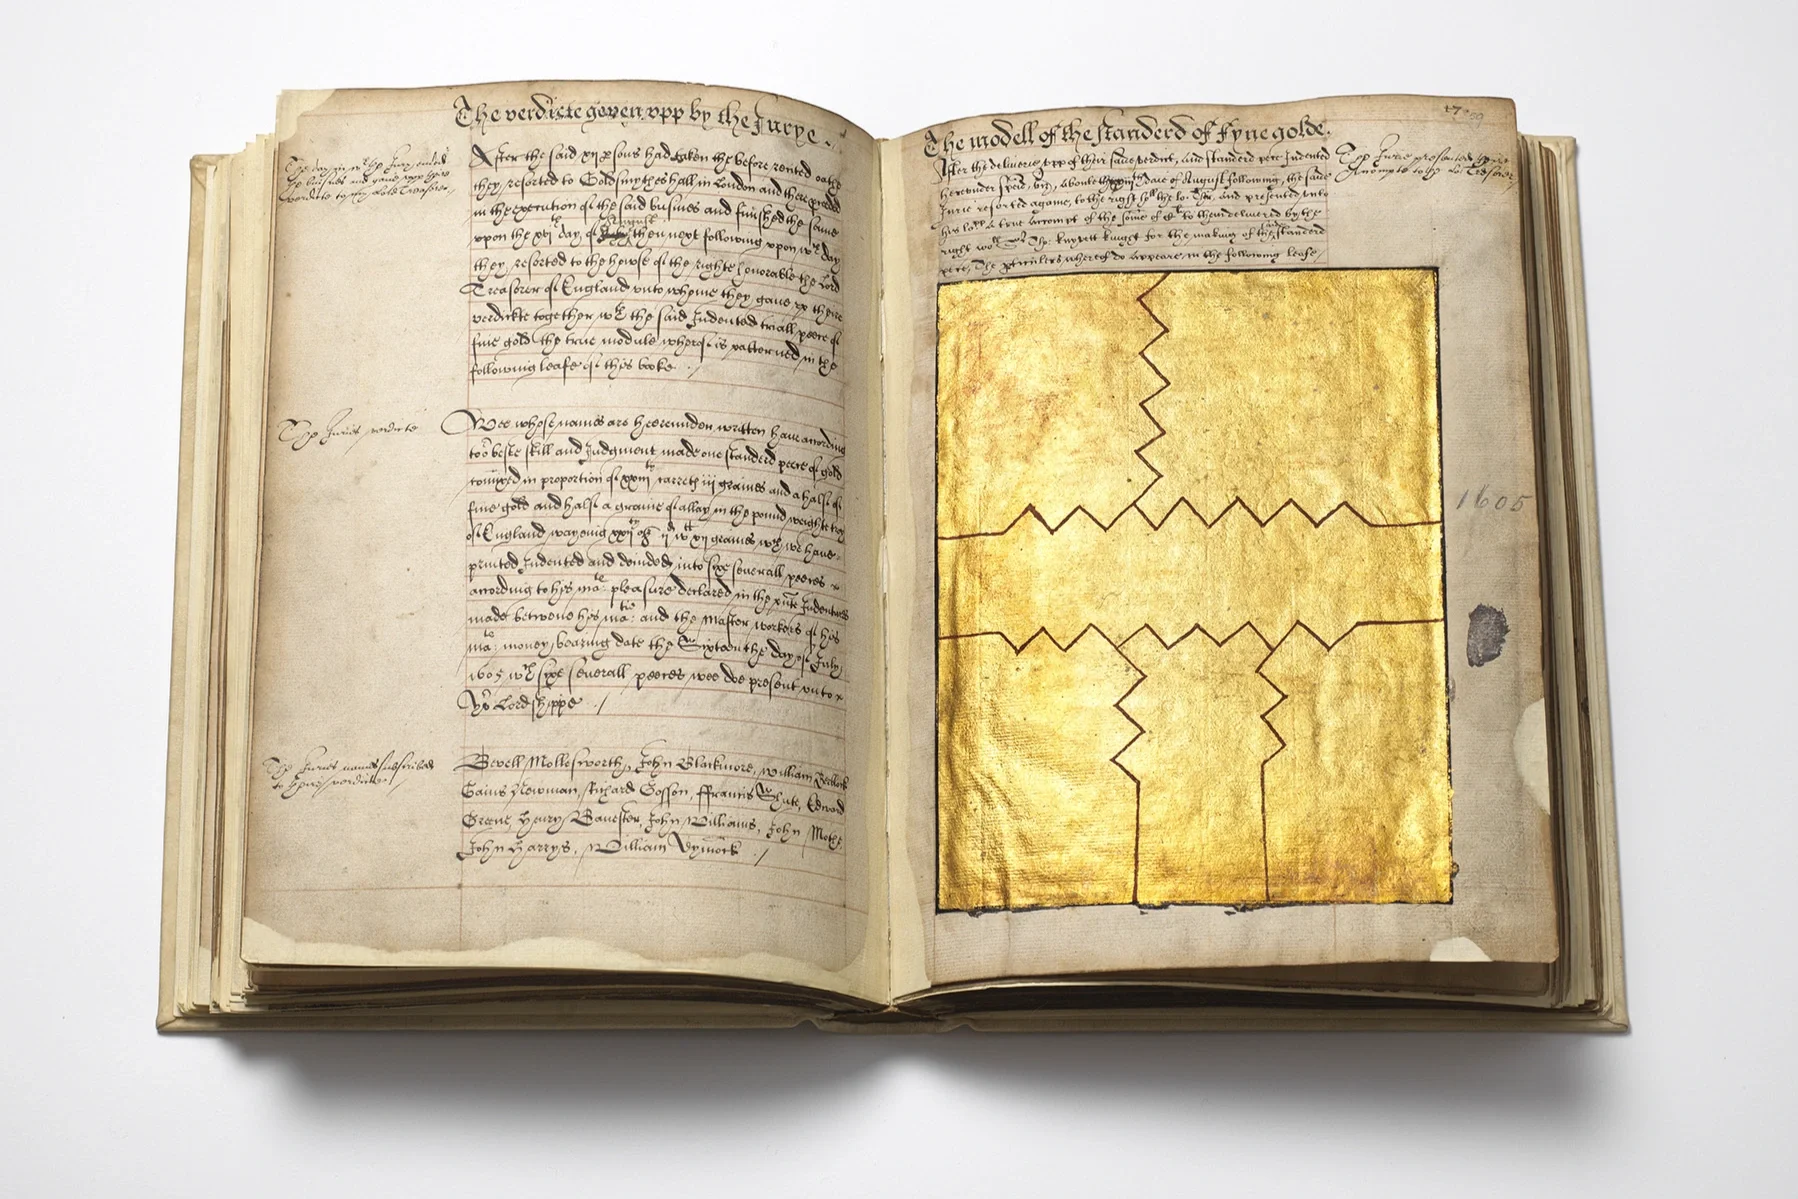 The verdicte geven vpp by the Jurye.
After the said xij persons had taken the before recited oathe
they resorted to Goldsmythes hall in London and there
in the execution of the said busines and finished the same
vpon the xvj day of August then next following vpon wch day
they resorted to the howse of the righte honorable the Lord
Treasorer of England vnto whome they gave vp there
verdickte together wth the said Indented triall peece of
fine gold the true module whereof is patterned in the
following leafe of this booke
The Juries verdicte
Wee whose names are heerevnder written have according
to or beste skill and Judgment made one standerd peece of gold
comixed in proportion of xxiij carrets iij graines and a halfe of
fine gold and halfe a graine of allay in the pound weighte troy
of England waying xxij oz ij wt xij graines wch we have
printed Indented and devided into sixe severall peeces
according to his mate pleasure declared in the Indentures
made betwene his matie and the Master workers of his
mate money bearing date the Sixteenthe day of July
1605 wch sixe severall peeces wee doe present vnto
yor Lordshippe
The Juries names subscribed
to theire verdicte
Bevell Mollesworth, John Blackmore, William
Gaius Newman, Richard Gosson, ffrancis Shute, Edward
Greene, Henry Banester, John Williams, John
John Harrys, William Dymock
The modell of the standerd of fyne golde.
After the deliverie vpp of their saide verdict, and standerd peece Indented
hereunder aboute the daie of August following, the saide
Jurie resorted againe, to the right the lo: and presented vnto
his lopp a true accompt of the some of to them delivered by the
right Tho: knyvett knight for the making of the standerd
peece, The perticulers whereof do appeare in the following leafe
The Jurie presented theire
Accompte to the Lo: Treasorer
1605